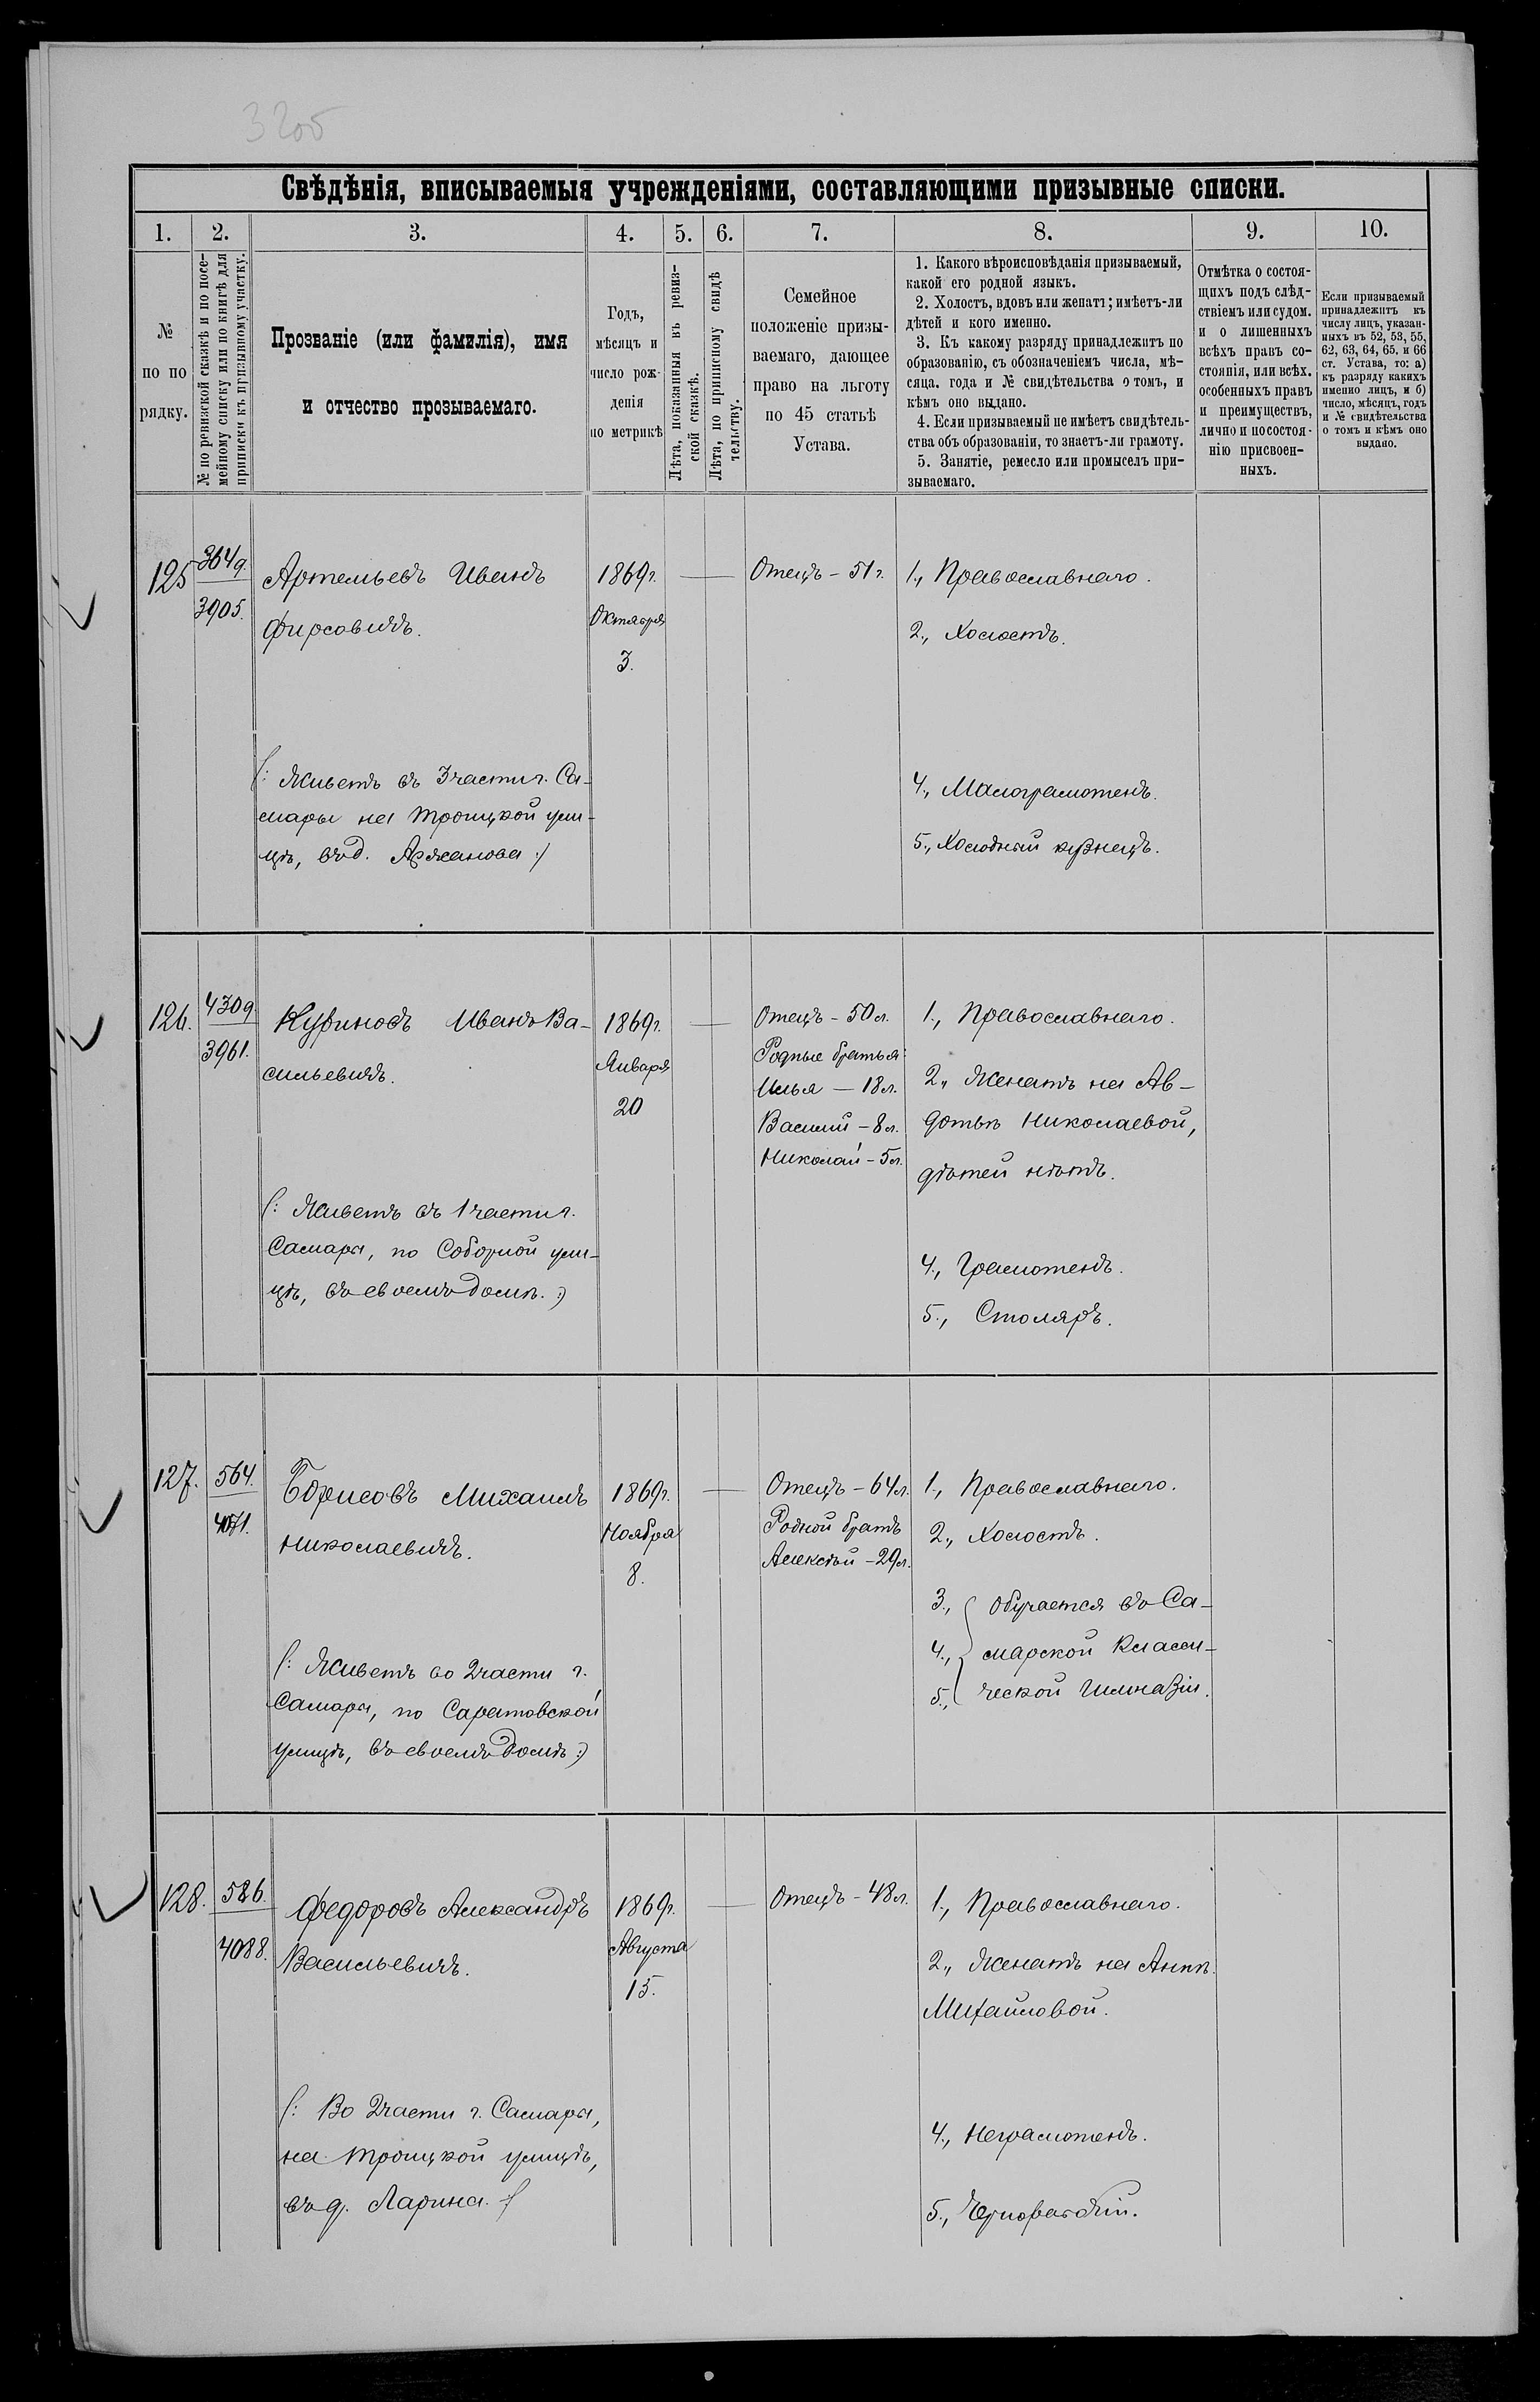 3205
Свѣдѣнія, вписываемыя учрежденіями, составляющими призывные списки.
1.
2.
3.
4.
5.
6.
7.
8.
9.
10.
№
по по
рядку.
№ по ревизской сказкѣ и по посе-
мейному списку или по книгѣ для
приписки къ призывному участку.
Прозваніе (или фамилія), имя
и отчество прозываемаго.
Годъ,
мѣсяцъ и
число рож-
денія
по метрикѣ
Лѣта, показанныя въ ревиз-
ской сказкѣ.
Лѣта, по приписному свидѣ
тельству.
Семейное
положеніе призы-
ваемаго, дающее
право на льготу
по 45 статьѣ
Устава.
1. Какого вѣроисповѣданія призываемый,
какой его родной языкъ.
2. Холостъ, вдовъ или женатъ; имѣетъ-ли
дѣтей и кого именно.
3. Къ какому разряду принадлежитъ по
образованію, съ обозначеніемъ числа, мѣ-
сяца, года и № свидѣтельства о томъ, и
кѣмъ оно выдано.
4. Если призываемый не имѣетъ свидѣтель-
ства объ образованіи, то знаетъ-ли грамоту.
5. Занятіе, ремесло или промыселъ при-
зываемаго.
Отмѣтка о состоя-
щихъ подъ слѣд-
ствіемъ или судом.
и о лишенныхъ
всѣхъ правъ со-
стоянія, или всѣх.
особенныхъ правъ
и преимуществъ,
лично и по состоя-
нію присвоен-
ныхъ.
Если призываемый
принадлежитъ къ
числу лицъ, указан-
ныхъ въ 52, 53, 55,
62, 63, 64, 65, и 66
ст. Устава, то: а)
къ разряду какихъ
именно лицъ, и б)
число, мѣсяцъ, годъ
и № свидѣтельства
о томъ и кѣмъ оно
выдано.
125
3649.
3905.
Артемьевъ Иванъ
Фирсовичъ.
(: Живетъ въ 3 части г. Са-
мары на Троицкой ули-
цѣ, въ д. Аржанова :)
1869 г.
Октября
3.
Отецъ - 51 г.
1., Православнаго.
2., Холостъ.
4., Малограмотенъ.
5., Холодный кузнецъ.
126.
4309.
3961.
Куриновъ Иванъ Ва-
сильевичъ.
(: Живетъ въ 1 части г.
Самары, по Соборной ули-
цѣ, въ своемъ домѣ. :)
1869 г.
Января
20
Отецъ - 50 л.
Родные братья:
Илья - 18 л.
Василий - 8 л.
Николай - 5 л.
1., Православнаго.
2., Женатъ на Ав-
дотьѣ Николаевой,
дѣтей нѣтъ.
4., Грамотенъ.
5., Столяръ.
127.
564.
4071.
Борисовъ Михаилъ
Николаевичъ.
(: Живетъ во 2 части г.
Самары, по Саратовской
улицѣ, въ своемъ домѣ :)
1869 г.
Ноября
8.
Отецъ - 64 л.
Родной братъ
Алексѣй - 29 л.
1., Православнаго.
2., Холостъ.
3., Обучается въ Са-
4., марской Класси-
5., ческой Гимназіи.
128.
586.
4088.
Федоровъ Александръ
Васильевичъ.
(: Во 2 части г. Самары,
на Троицкой улицѣ,
въ д. Ларина. :)
1869 г.
Августа
15.
Отецъ - 48 л.
1., Православнаго.
2., Женатъ на Аннѣ
Михайловой.
4., Неграмотенъ.
5., Чернорабочій.